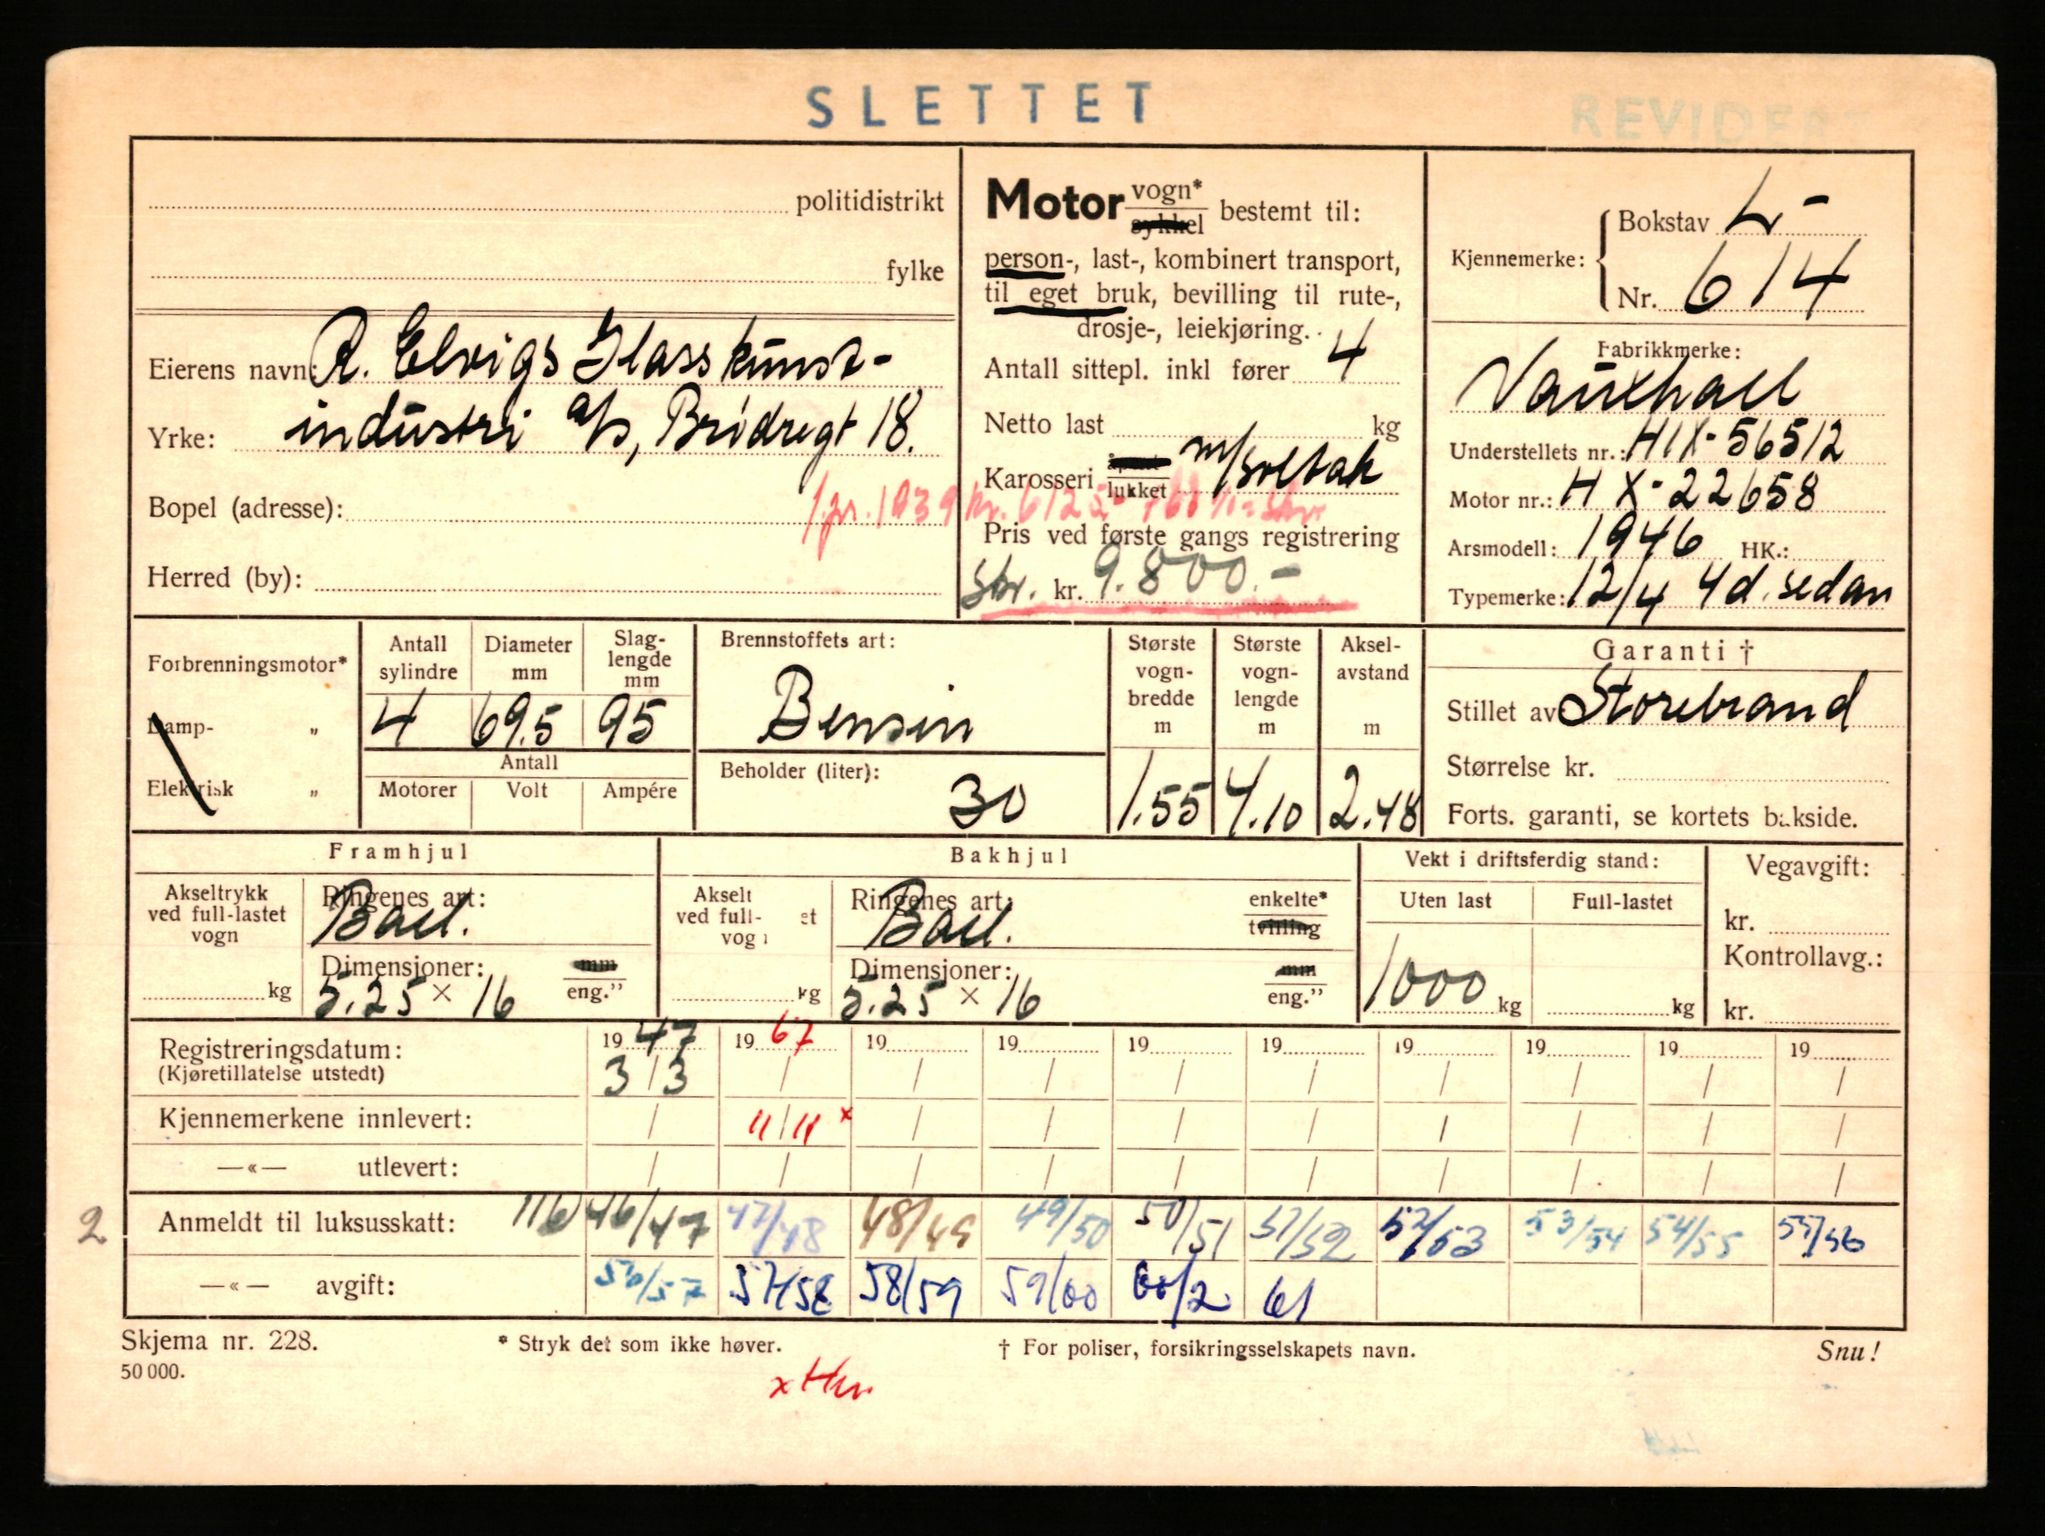 SLETTET
REVIDERT
politidistrikt
fylke
Eierens navn: R. Elvigs Glasskunst-
Yrke: industri a/s, Brødregt 18.
Bopel (adresse):
Herred (by):
Motor vogn* sykkel bestemt til:
person-, last-, kombinert transport,
til eget bruk, bevilling til rute-,
drosje-, leiekjøring.
Antall sittepl. inkl fører 4
Netto last kg
Karosseri åpent lukket m/soltak
1.pr. 1939 kr. 6125
Pris ved første gangs registrering
Skr. kr. 9.800.-
Kjennemerke: Bokstav L-
Nr. 614
Fabrikkmerke:
Vauxhall
Understellets nr.: HIX-56512
Motor nr.: HX-22658
Arsmodell: 1946 HK.:
Typemerke: 12/4 4d. sedan
Forbrenningsmotor*
Damp- „
Elektrisk „
Antall sylindre 4
Diameter mm 69.5
Slag-lengde mm 95
Antall
Motorer Volt Ampére
Brennstoffets art:
Bensin
Beholder (liter):
30
Største vogn-bredde m 1.55
Største vogn-lengde m 4.10
Aksel-avstand m 2.48
Garanti †
Stillet av Storebrand
Størrelse kr.
Forts. garanti, se kortets bakside.
Framhjul
Akseltrykk ved full-lastet vogn
kg
Ringenes art:
Ball.
Dimensjoner: mm
5.25 × 16 eng."
Bakhjul
Akselt
ved full- et
vog
kg
Ringenes art: enkelte*
Ball. tvilling
Dimensjoner: mm
5.25 × 16 eng."
Vekt i driftsferdig stand:
Uten last Full-lastet
1000 kg kg
Vegavgift:
kr.
Kontrollavg.:
kr.
Registreringsdatum: 1947 1967 19 19 19 19 19 19 19 19
(Kjøretillatelse utstedt) 3/3 / / / / / / / / /
Kjennemerkene innlevert: / 11/11 x / / / / / / / /
—«— utlevert: / / / / / / / / / /
2 Anmeldt til luksusskatt: 116 46/47 47/48 48/49 49/50 50/51 51/52 52/53 53/54 54/55 55/56
—«— avgift: 56/57 57/58 58/59 59/60 60/2 61
Skjema nr. 228. * Stryk det som ikke høver. † For poliser, forsikringsselskapets navn. Snu!
50 000.